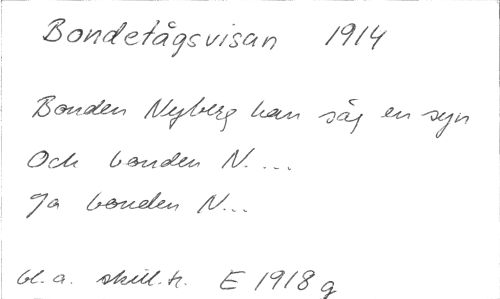 Bondetågsvisan 1914
Bonden Nyberg han såg en syn
Och bonden N. ...
Ja bonden N...
bl.a. skill.tr. E 1918 g